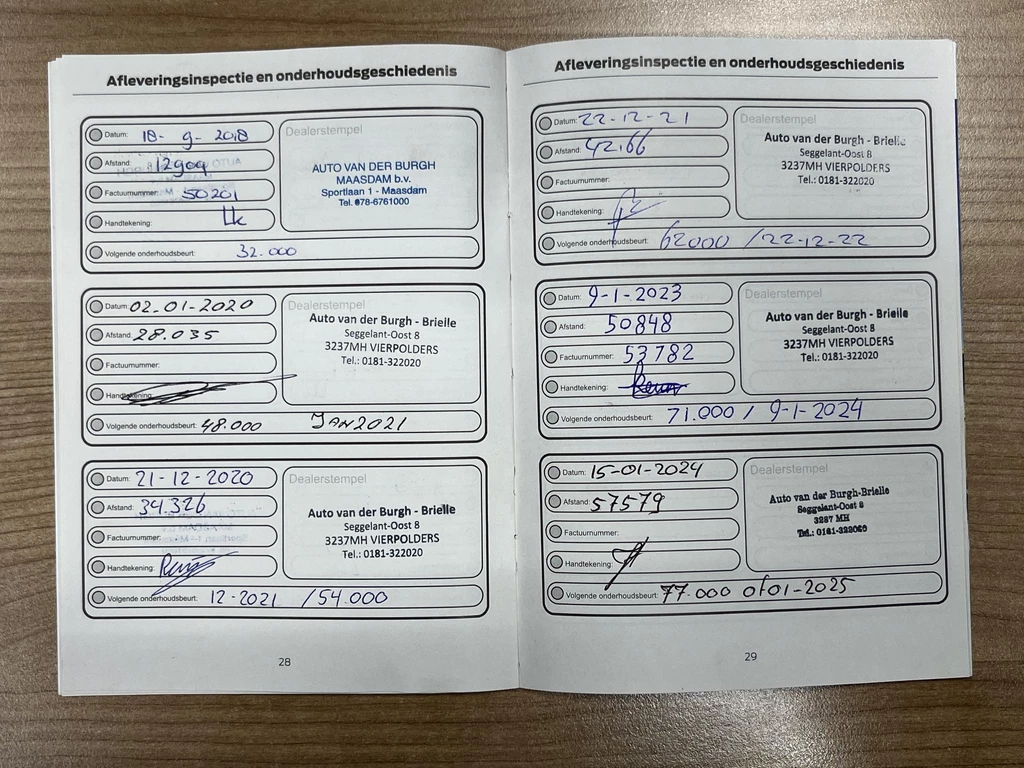 Afleveringsinspectie en onderhoudsgeschiedenis
Datum: 18-9-2018
Afstand: 12909
Factuurnummer: 50201
Handtekening:
Volgende onderhoudsbeurt: 32.000
Dealerstempel
AUTO VAN DER BURGH
MAASDAM b.v.
Sportlaan 1 - Maasdam
Tel. 078-6761000
Datum: 02-01-2020
Afstand: 28.035
Factuurnummer:
Handtekening:
Volgende onderhoudsbeurt: 48.000 JAN 2021
Dealerstempel
Auto van der Burgh - Brielle
Seggelant-Oost 8
3237MH VIERPOLDERS
Tel.: 0181-322020
Datum: 21-12-2020
Afstand: 34.326
Factuurnummer:
Handtekening:
Volgende onderhoudsbeurt: 12-2021 /54.000
Dealerstempel
Auto van der Burgh - Brielle
Seggelant-Oost 8
3237MH VIERPOLDERS
Tel.: 0181-322020
28
Afleveringsinspectie en onderhoudsgeschiedenis
Datum: 22-12-21
Afstand: 42.66
Factuurnummer:
Handtekening:
Volgende onderhoudsbeurt: 62000 /22-12-22
Dealerstempel
Auto van der Burgh - Brielle
Seggelant-Oost 8
3237MH VIERPOLDERS
Tel.: 0181-322020
Datum: 9-1-2023
Afstand: 50848
Factuurnummer: 53782
Handtekening:
Volgende onderhoudsbeurt: 71.000 / 9-1-2024
Dealerstempel
Auto van der Burgh - Brielle
Seggelant-Oost 8
3237MH VIERPOLDERS
Tel.: 0181-322020
Datum: 15-01-2024
Afstand: 57579
Factuurnummer:
Handtekening:
Volgende onderhoudsbeurt: 77.000 of 01-2025
Dealerstempel
Auto van der Burgh-Brielle
Seggelant-Oost 8
3237 MH
Tel.:
29